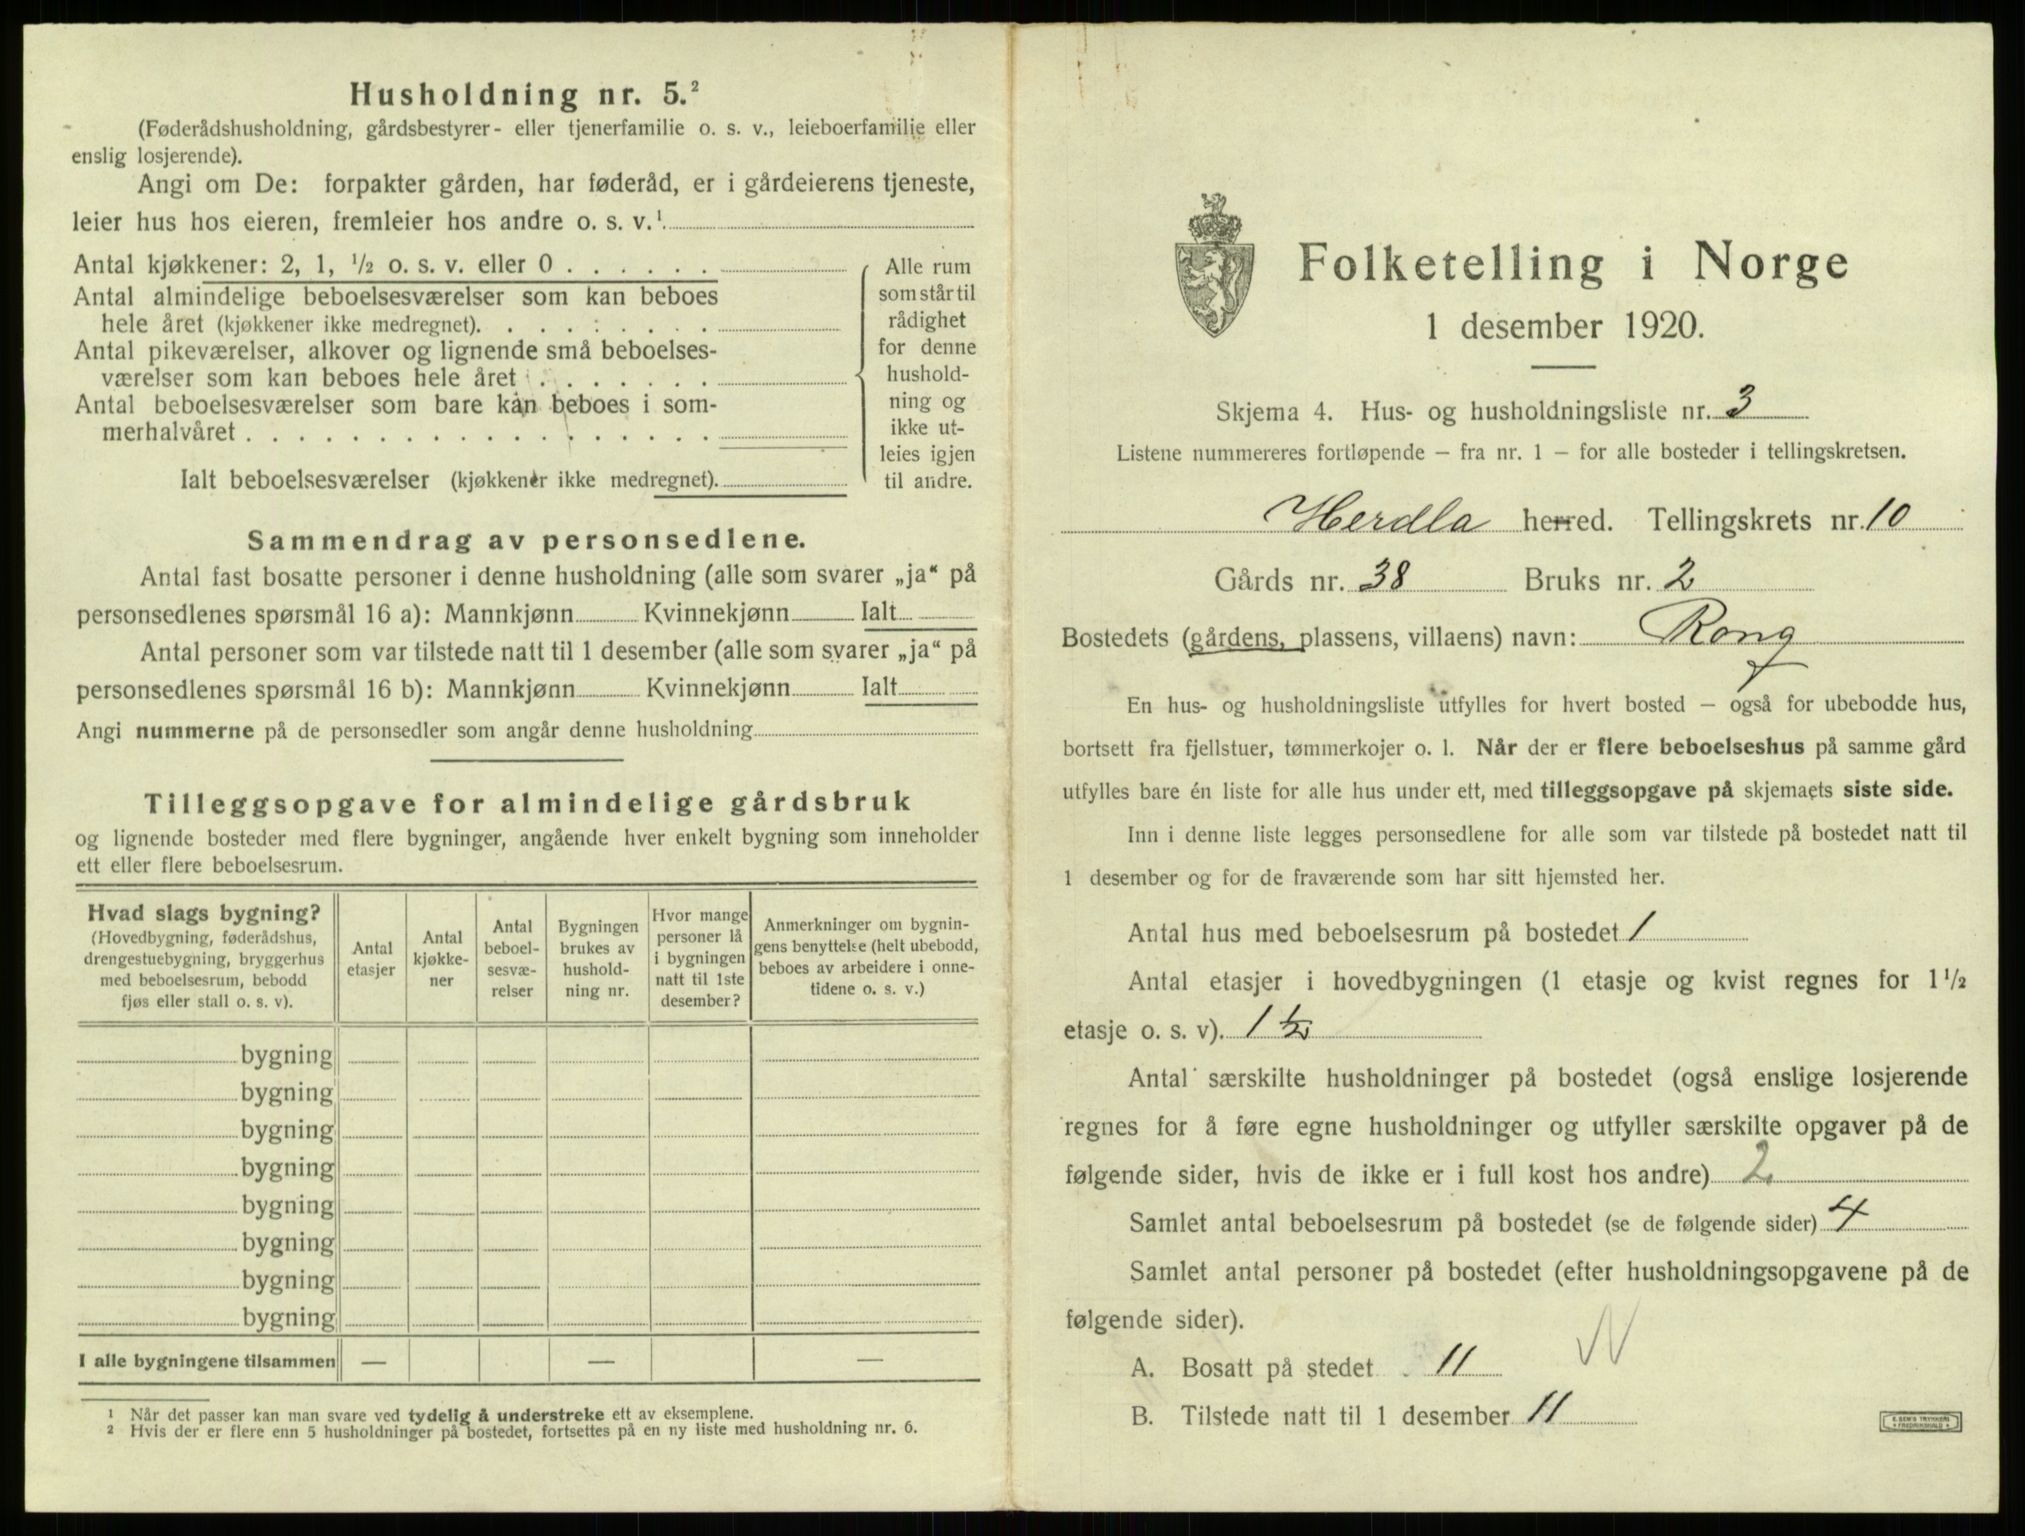 Husholdning nr. 5.²
(Føderådshusholdning, gårdsbestyrer- eller tjenerfamilie o. s. v., leieboerfamilie eller
enslig losjerende).
Angi om De: forpakter gården, har føderåd, er i gårdeierens tjeneste,
leier hus hos eieren, fremleier hos andre o. s. v.¹
Antal kjøkkener: 2, 1, ½ o. s. v. eller 0 . . . . . .
Antal almindelige beboelsesværelser som kan beboes
hele året (kjøkkener ikke medregnet). . . . . . . . .
Antal pikeværelser, alkover og lignende små beboelses-
værelser som kan beboes hele året . . . . . . .
Antal beboelsesværelser som bare kan beboes i som-
merhalvåret . . . . . . . . . . . . . . . . . .
Ialt beboelsesværelser (kjøkkener ikke medregnet).
Alle rum
som står til
rådighet
for denne
hushold-
ning og
ikke ut-
leies igjen
til andre.
Sammendrag av personsedlene.
Antal fast bosatte personer i denne husholdning (alle som svarer „ja“ på
personsedlenes spørsmål 16 a): Mannkjønn Kvinnekjønn Ialt
Antal personer som var tilstede natt til 1 desember (alle som svarer „ja“ på
personsedlenes spørsmål 16 b): Mannkjønn Kvinnekjønn Ialt
Angi nummerne på de personsedler som angår denne husholdning
Tilleggsopgave for almindelige gårdsbruk
og lignende bosteder med flere bygninger, angående hver enkelt bygning som inneholder
ett eller flere beboelsesrum.
Hvad slags bygning?
(Hovedbygning, føderådshus,
drengestuebygning, bryggerhus
med beboelsesrum, bebodd
fjøs eller stall o. s. v).
Antal
etasjer
Antal
kjøkke-
ner
Antal
beboel-
sesvæ-
relser
Bygningen
brukes av
hushold-
ning nr.
Hvor mange
personer lå
i bygningen
natt til 1ste
desember?
Anmerkninger om bygnin-
gens benyttelse (helt ubebodd,
beboes av arbeidere i onne-
tidene o. s. v.)
bygning
bygning
bygning
bygning
bygning
bygning
bygning
bygning
I alle bygningene tilsammen — — —
¹ Når det passer kan man svare ved tydelig å understreke ett av eksemplene.
² Hvis der er flere enn 5 husholdninger på bostedet, fortsettes på en ny liste med husholdning nr. 6.
Folketelling i Norge
1 desember 1920.
Skjema 4. Hus- og husholdningsliste nr. 3
Listene nummereres fortløpende – fra nr. 1 – for alle bosteder i tellingskretsen.
Herdla herred. Tellingskrets nr. 10
Gårds nr. 38 Bruks nr. 2
Bostedets (gårdens, plassens, villaens) navn: Rong
En hus- og husholdningsliste utfylles for hvert bosted – også for ubebodde hus,
bortsett fra fjellstuer, tømmerkojer o. l. Når der er flere beboelseshus på samme gård
utfylles bare én liste for alle hus under ett, med tilleggsopgave på skjemaets siste side.
Inn i denne liste legges personsedlene for alle som var tilstede på bostedet natt til
1 desember og for de fraværende som har sitt hjemsted her.
Antal hus med beboelsesrum på bostedet 1
Antal etasjer i hovedbygningen (1 etasje og kvist regnes for 1½
etasje o. s. v). 1 ½
Antal særskilte husholdninger på bostedet (også enslige losjerende
regnes for å føre egne husholdninger og utfyller særskilte opgaver på de
følgende sider, hvis de ikke er i full kost hos andre) 2
Samlet antal beboelsesrum på bostedet (se de følgende sider) 4
Samlet antal personer på bostedet (efter husholdningsopgavene på de
følgende sider).
A. Bosatt på stedet 11
B. Tilstede natt til 1 desember 11
E. SEM'S TRYKKERI
FREDRIKSHALD